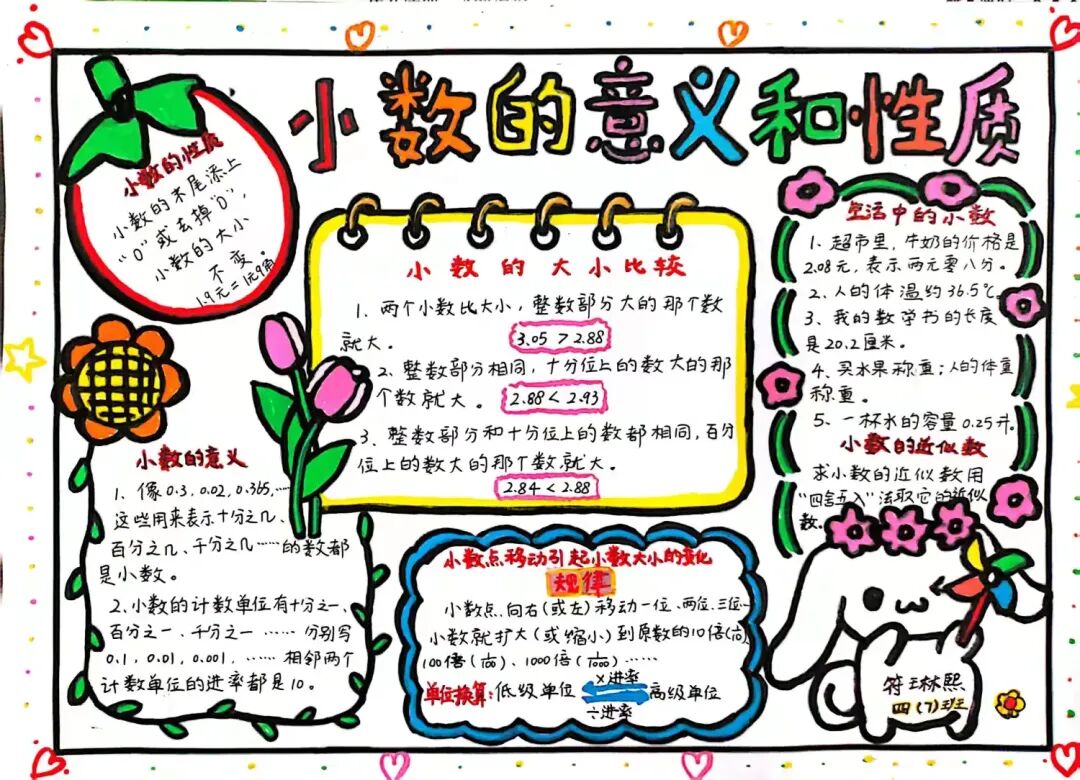 小数的意义和性质
小数的性质
小数的末尾添上
“0”或去掉“0”,
小数的大小
不变。
1.9元=1元9角
小数的大小比较
1、两个小数比大小,整数部分大的那个数
就大。
3.05 > 2.88
2、整数部分相同,十分位上的数大的那
个数就大。
2.88 < 2.93
3、整数部分和十分位上的数都相同,百分
位上的数大的那个数,就大。
2.84 < 2.88
生活中的小数
1、超市里,牛奶的价格是
2.08元,表示两元零八分。
2、人的体温约36.5℃。
3、我的数学书的长度
是20.2厘米。
4、买水果称重;人的体重
称重。
5、一杯水的容量0.25升。
小数的近似数
求小数的近似数用
“四舍五入”法取它的近似
数。
小数的意义
1、像0.3,0.02,0.365,……
这些用来表示十分之几、
百分之几、千分之几……的数都
是小数。
2、小数的计数单位有十分之一、
百分之一、千分之一……分别写
0.1,0.01,0.001,……相邻两个
计数单位的进率都是10。
小数点移动引起小数大小的变化
规律
小数点向右(或左)移动一位、两位、三位…
小数就扩大(或缩小)到原数的10倍(1/10)
100倍(1/100)、1000倍(1/1000)……
单位换算:低级单位
×进率
÷进率
高级单位
符琳熙
四(7)班